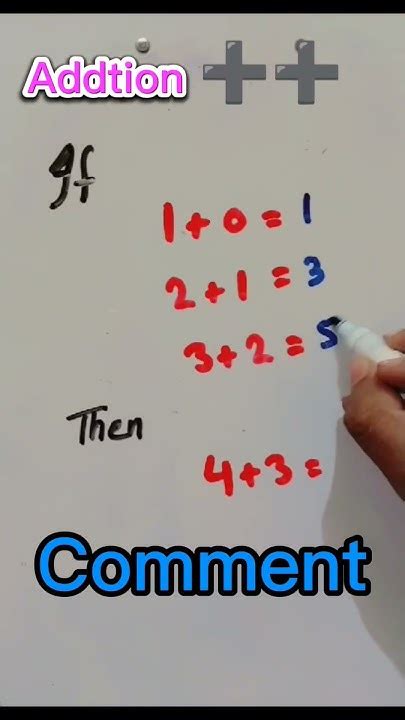 Addtion ➕➕
If
1+0=1
2+1=3
3+2=5
Then
4+3=
Comment